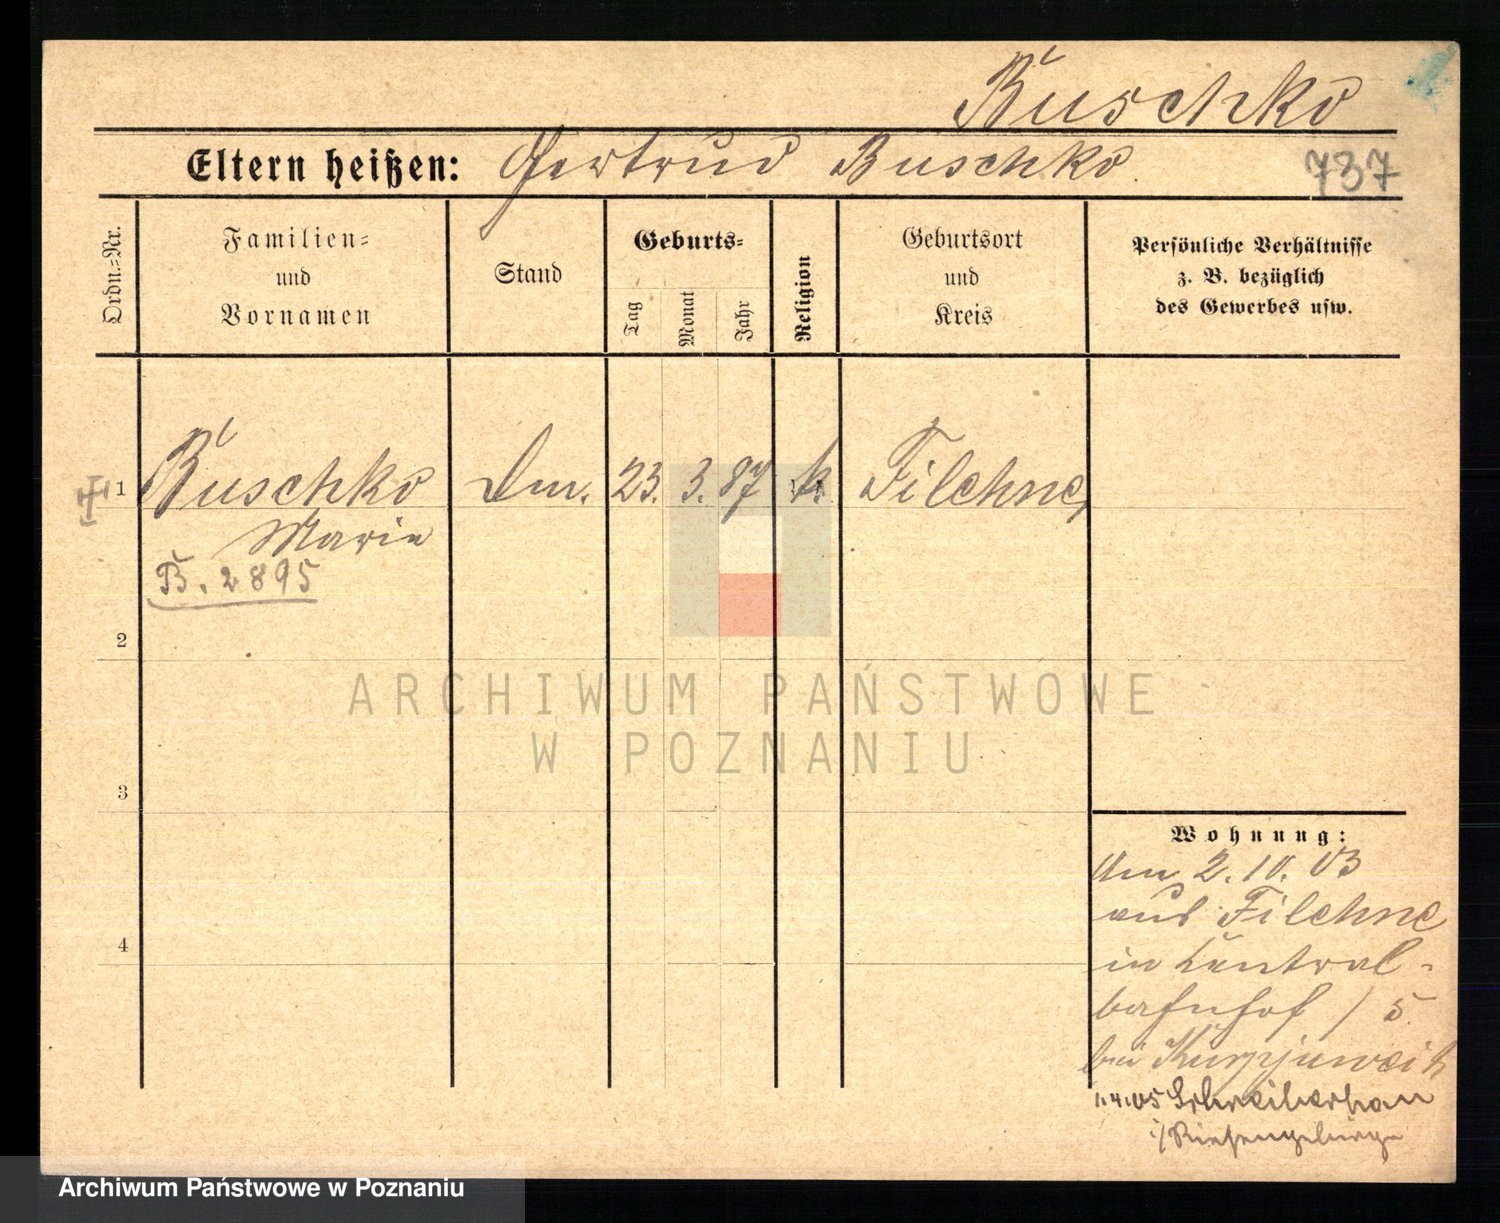 Buschko
Eltern heißen: Gertrud Buschko.
737
Ordn.=Nr.
Familien=
und
Vornamen
Stand
Geburts=
Tag
Monat
Jahr
Religion
Geburtsort
und
Kreis
Persönliche Verhältnisse
z. B. bezüglich
des Gewerbes usw.
1 Buschko Dm. 23. 3. 87 k Filehne
Marie
B. 2895
2
3
4
Wohnung:
Am 2. 10. 03
aus Filehne
in Central-
bahnhof / 5
bei
1.4.05 Schreiberhau
i/Riesengebirge
ARCHIWUM PAŃSTWOWE
W POZNANIU
Archiwum Państwowe w Poznaniu